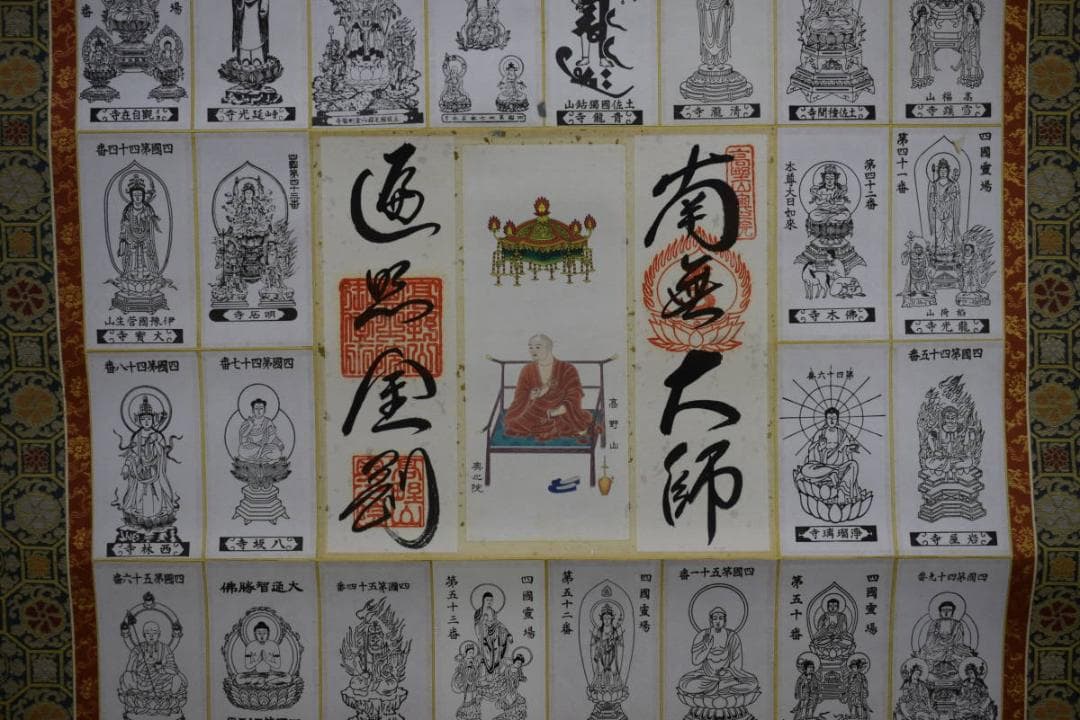 高福山
雪蹊寺
土佐種間寺
清瀧寺
土佐國獨鈷山
青龍寺
延光寺
觀自在寺
四國靈場
第四十一番
稻荷山
龍光寺
第四十二番
本尊大日如來
佛木寺
南無大師
高野山
奥之院
遍照金剛
四國第四十三番
明石寺
四國第四十四番
伊豫國菅生山
大寳寺
四國第四十五番
岩屋寺
第四十六番
淨瑠璃寺
四國第四十七番
八坂寺
四國第四十八番
西林寺
四國第四十九番
四國靈場
第五十番
四國第五十一番
四國靈場
第五十二番
四國靈場
第五十三番
四國第五十四番
大通智勝佛
四國第五十六番